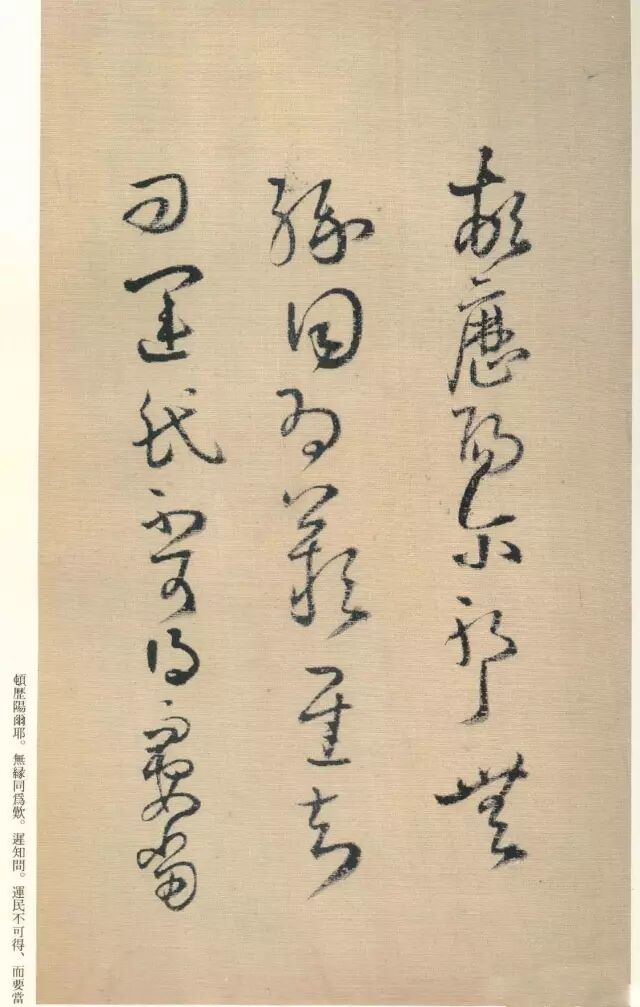 頓歷陽爾耶無
緣同為歎遲知
問運民不可得而要當
頓歷陽爾耶。無緣同爲歎。遲知問。運民不可得、而要當